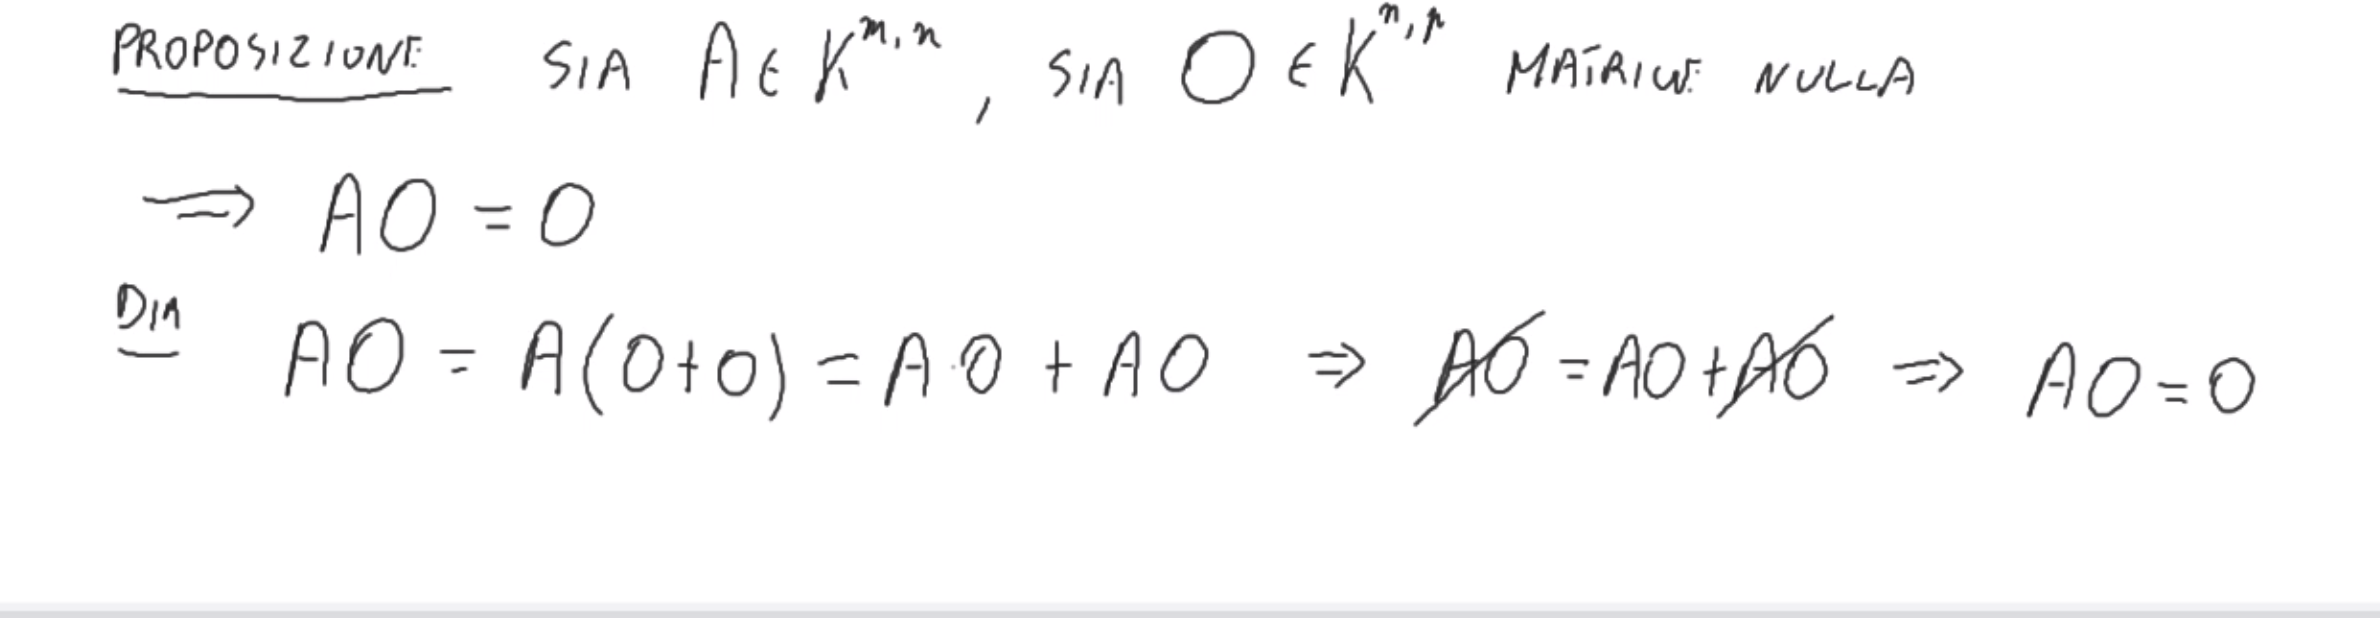 PROPOSIZIONE SIA A ∈ K^{m,n}, SIA O ∈ K^{n,p} MATRICE NULLA
⇒ AO = O
DIM AO = A(O+O) = A·O + AO ⇒ AO = AO + AO ⇒ AO = O